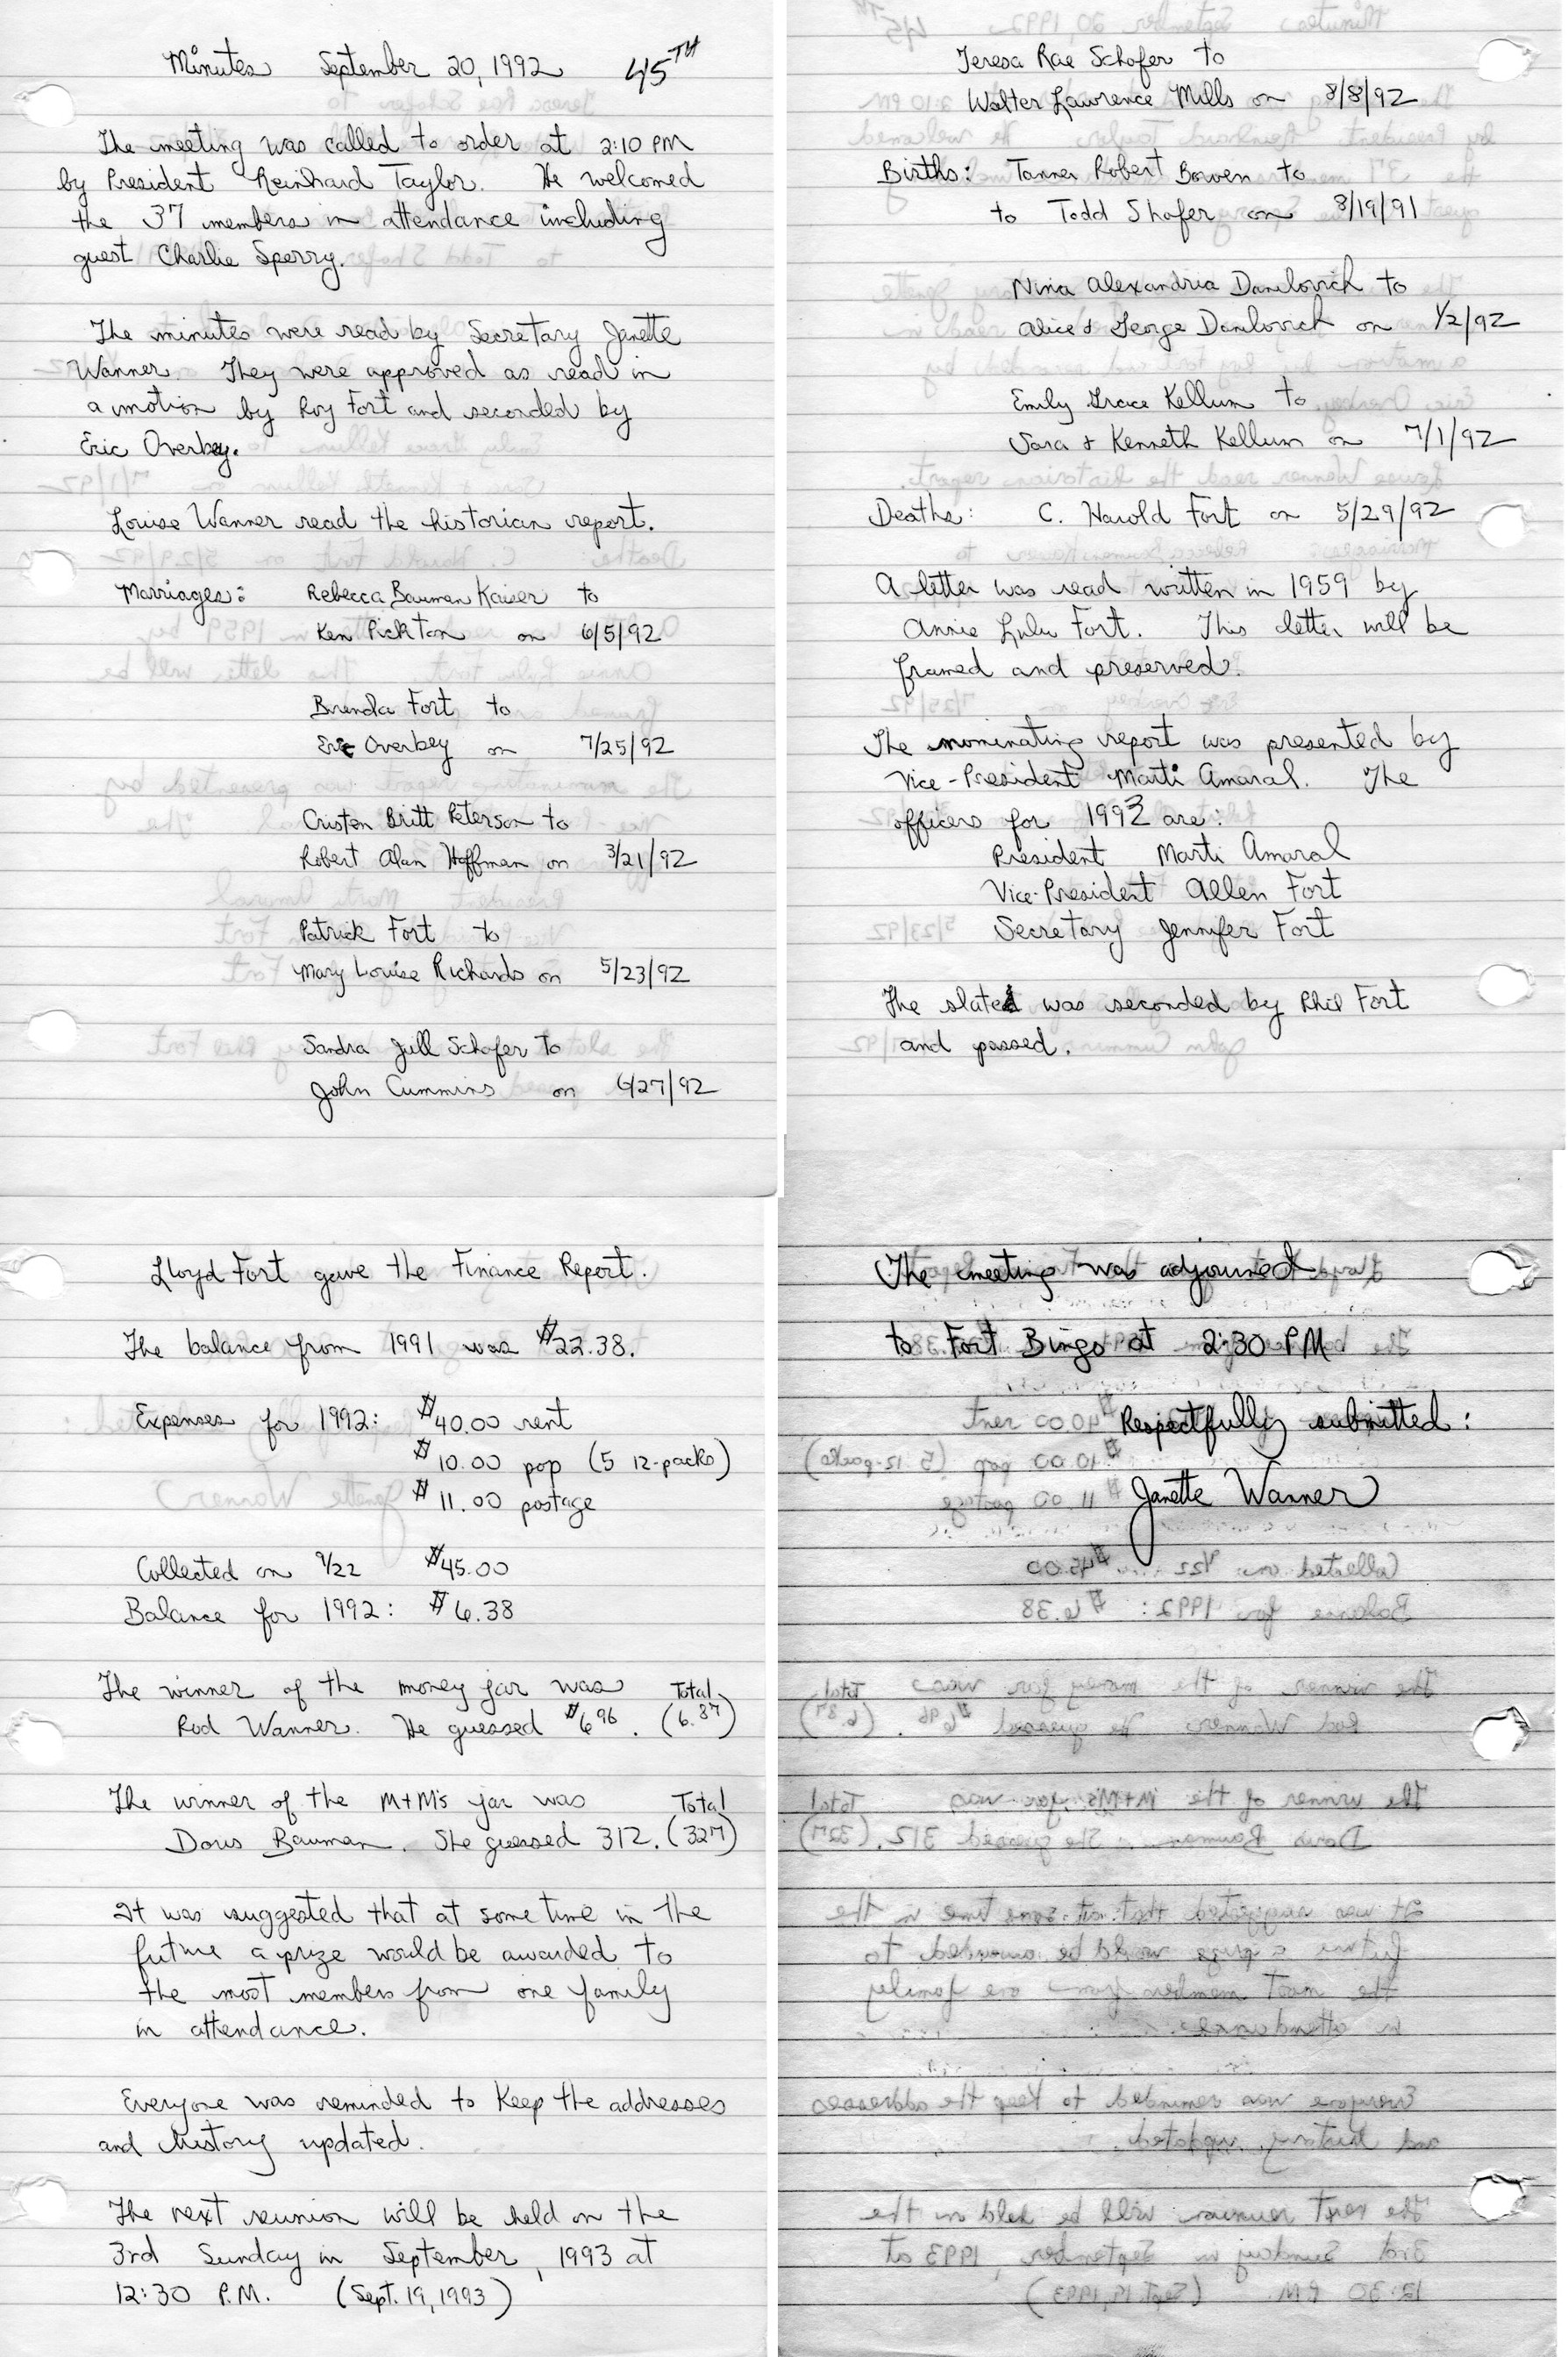 Minutes September 20, 1992 45TH
The meeting was called to order at 2:10 PM
by President Reinhard Taylor. He welcomed
the 37 members in attendance including
guest Charlie Sperry.
The minutes were read by Secretary Janette
Wanner. They were approved as read in
a motion by Roy Fort and seconded by
Eric Overbey.
Louise Wanner read the historian report.
Marriages: Rebecca Bauman Kaiser to
Ken Pickton on 6/5/92
Brenda Fort to
Eric Overbey on 7/25/92
Cristen Britt Peterson to
Robert Alan Hoffman on 3/21/92
Patrick Fort to
Mary Louise Richards on 5/23/92
Sandra Jill Schofer to
John Cummins on 6/27/92
Teresa Rae Schofer to
Walter Lawrence Mills on 8/8/92
Births: Tanner Robert Bowen to
to Todd Shofer on 8/19/91
Nina Alexandria Danilovich to
Alice & George Danilovich on 1/2/92
Emily Grace Kellum to
Sara & Kenneth Kellum on 7/1/92
Deaths: C. Harold Fort on 5/29/92
A letter was read written in 1959 by
Annie Lulu Fort. This letter will be
framed and preserved.
The nominating report was presented by
Vice-President Marti Amaral. The
officers for 1993 are:
President Marti Amaral
Vice-President Allen Fort
Secretary Jennifer Fort
The slate was seconded by Phil Fort
and passed.
Lloyd Fort gave the Finance Report.
The balance from 1991 was $22.38.
Expenses for 1992: $40.00 rent
$10.00 pop (5 12-packs)
$11.00 postage
Collected on 9/22 $45.00
Balance for 1992: $6.38
The winner of the money jar was Total
Rod Wanner. He guessed $6.96. (6.87)
The winner of the M+M's jar was Total
Doris Bauman. She guessed 312. (327)
It was suggested that at some time in the
future a prize would be awarded to
the most members from one family
in attendance.
Everyone was reminded to keep the addresses
and history updated.
The next reunion will be held on the
3rd Sunday in September, 1993 at
12:30 P.M. (Sept. 19, 1993)
The meeting was adjourned
to Fort Bingo at 2:30 PM
Respectfully submitted:
Janette Wanner